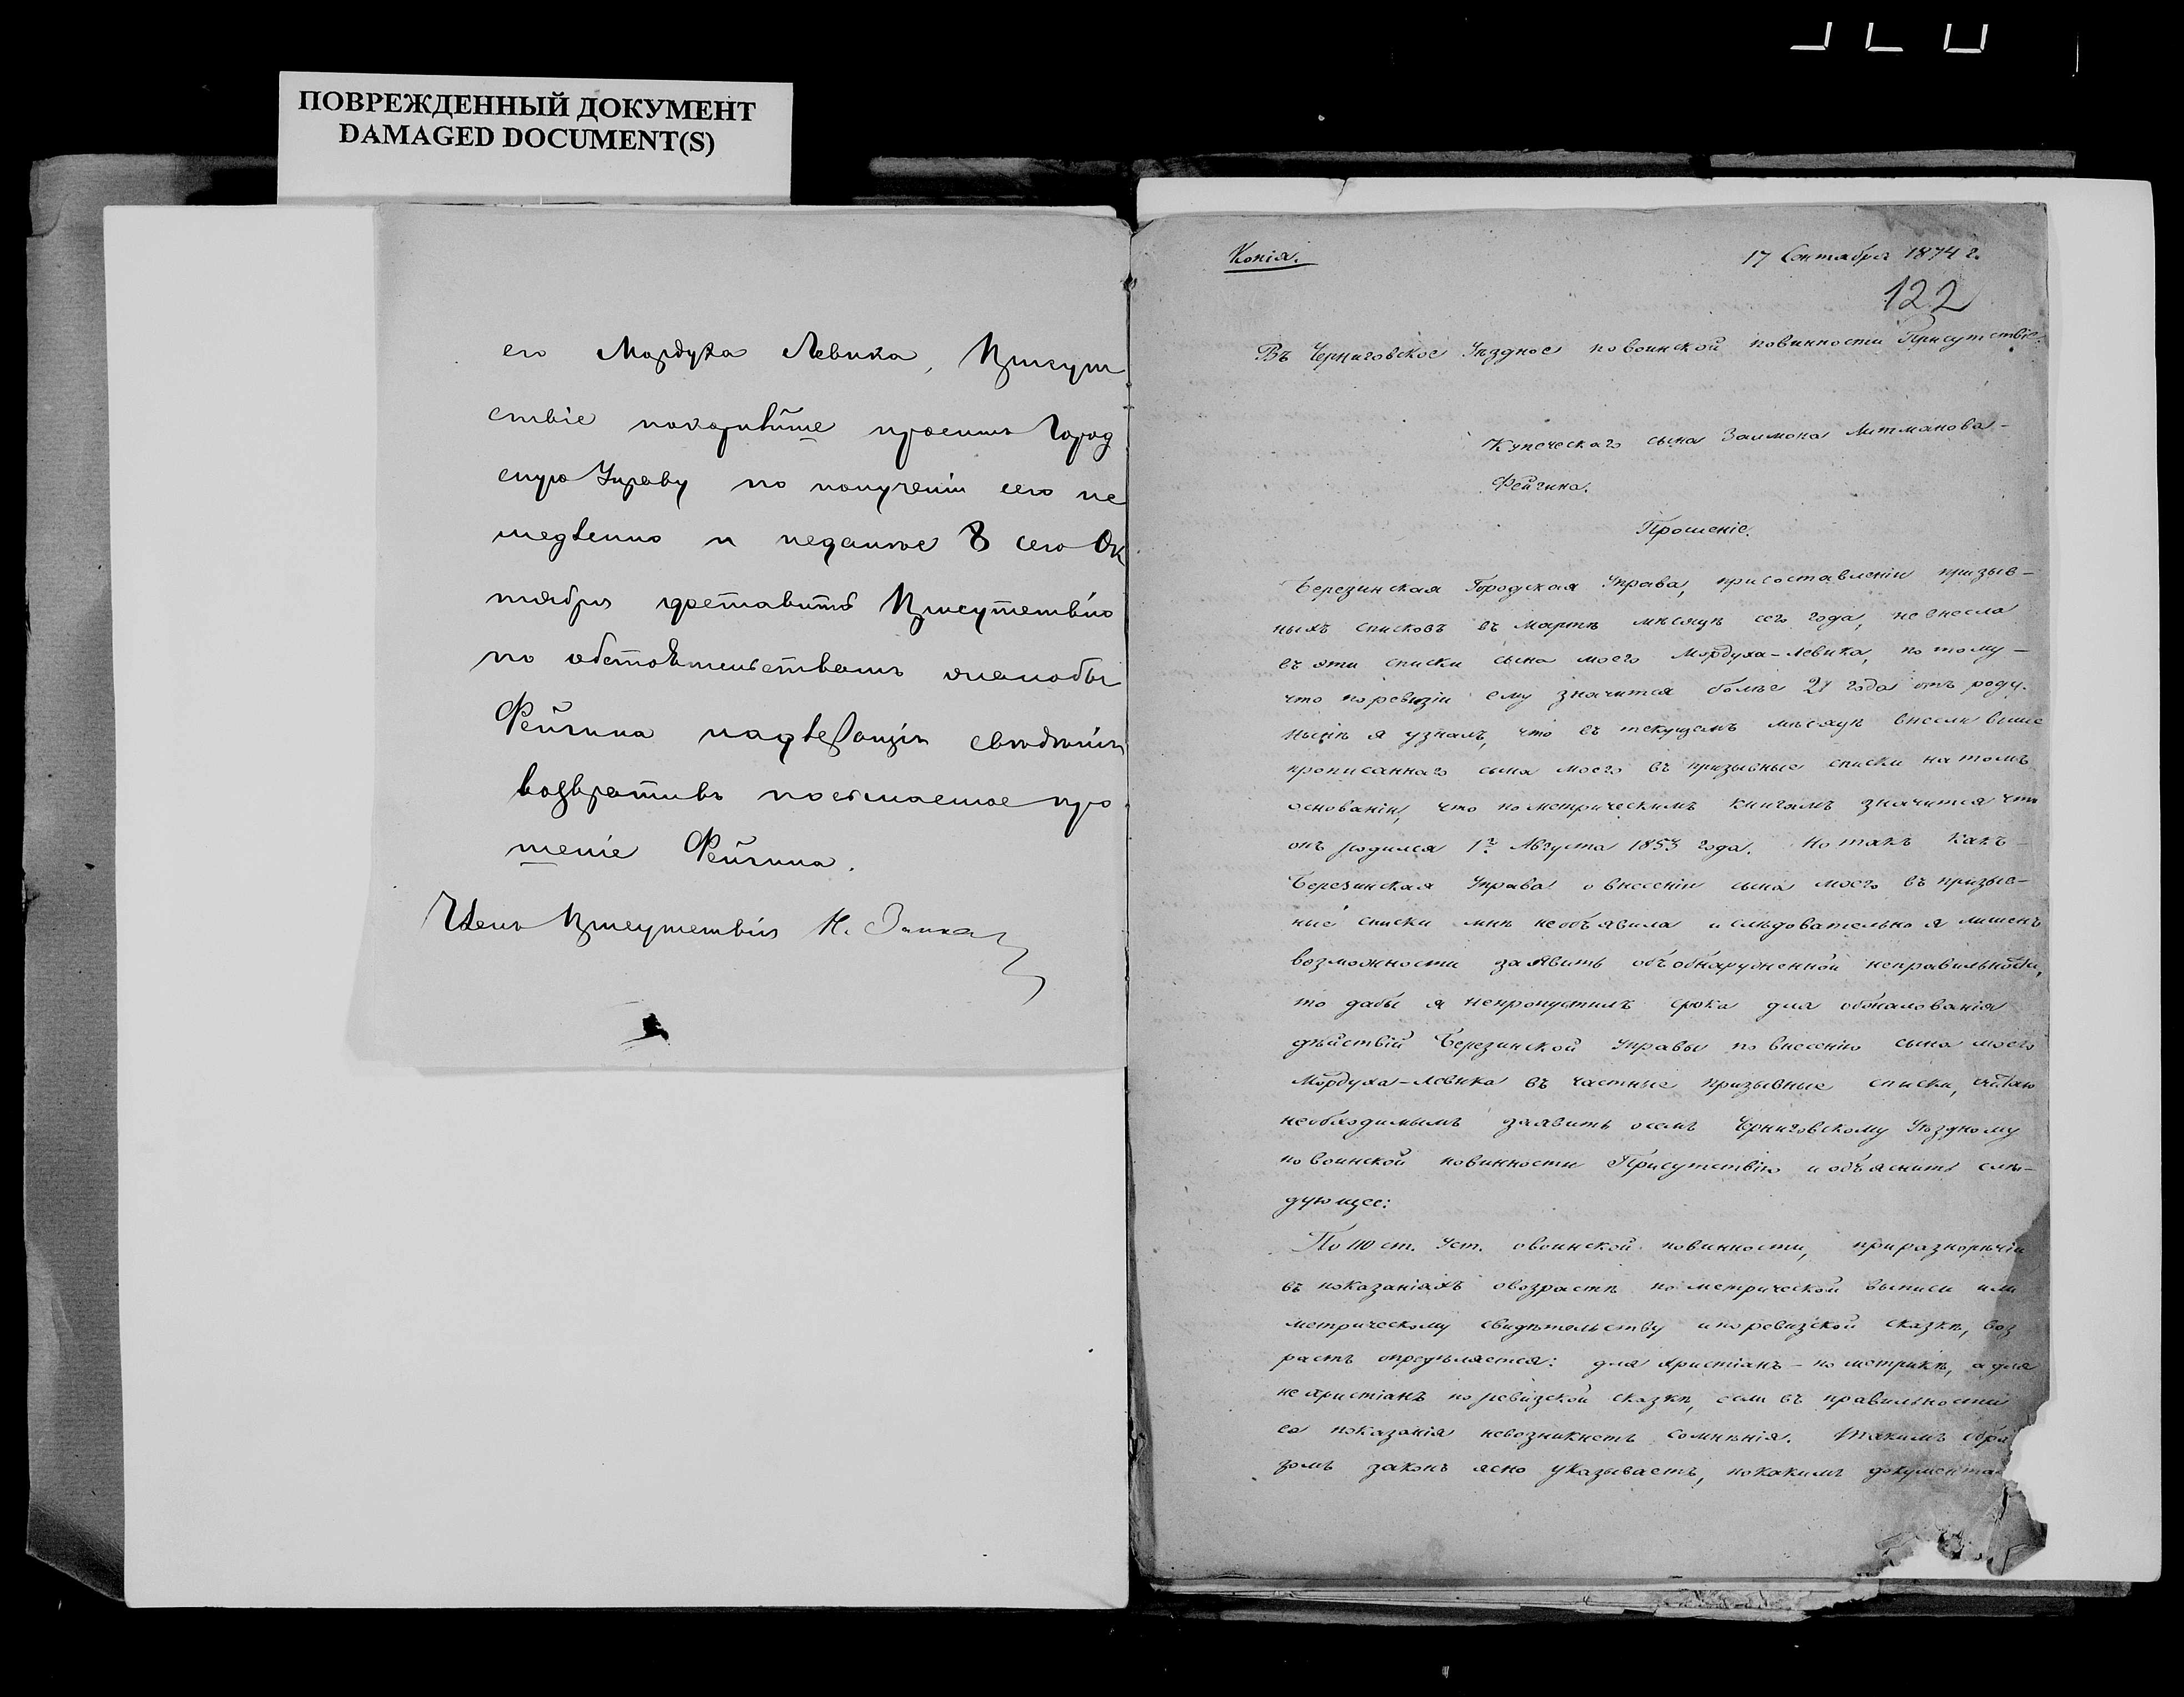 ПОВРЕЖДЕННЫЙ ДОКУМЕНТ
DAMAGED DOCUMENT(S)
его Мордуха Левика, Присут
ствіе покорнѣйше проситъ Город
скую Управу по полученіи сего не
медленно и недалѣе 8 сего Ок
тября доставить Присутствію
по обстоятельствамъ жалобы
Фейгина надлежащія свѣдѣнія
возвративъ посылаемое про
шеніе Фейгина.
Членъ Присутствія Н.
Копія.
17 Сентября 1874 г.
122
Въ Черниговское Уѣздное по воинской повинности Присутствіе.
Купеческаго сына Залмона Литманова-
Фейгина.
Прошеніе.
Березинская Городская Управа, при составленіи призыв-
ныхъ списковъ въ Мартѣ мѣсяцѣ сего года, не внесла
въ эти списки сына моего Мордуха-Левика, потому-
что по ревизіи ему значится болѣе 21 года отъ роду.
Нынѣ я узналъ, что въ текущемъ мѣсяцѣ внесли выше
прописаннаго сына моего въ призывные списки на томъ
основаніи, что по метрическимъ книгамъ значится что
онъ родился 1го Августа 1853 года. Но такъ какъ-
Березинская Управа о внесеніи сына моего въ призыв-
ные списки мнѣ необъявила и слѣдовательно я лишенъ
возможности заявить объ обнаруженной неправильности,
то дабы я непропустилъ срока для обжалованія
дѣйствій Березинской Управы по внесенію сына моего
Мордуха-Левика въ частные призывные списки, считаю
необходимымъ заявить о семъ Черниговскому Уѣздному
по воинской повинности Присутствію и объяснить слѣ-
дующее:
По 110 ст. Уст. о воинской повинности, при разнорѣчіи
въ показаніяхъ о возрастѣ по метрической выписи или
метрическому свидѣтельству и по ревизской сказкѣ, воз
растъ опредѣляется: для христіанъ - по метрикѣ, а для
не христіанъ по ревизской сказкѣ, если въ правильности
ея показанія невозникнетъ сомнѣнія. Такимъ обра
зомъ законъ ясно указываетъ, по какимъ документа